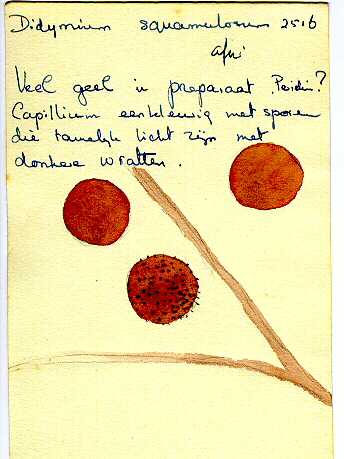 Didymium squamulosum 2516
afni
Veel geel in preparaat Peridi?
Capillium eenkleurig met sporen
die tamelijk licht zijn met
donkere wratten.